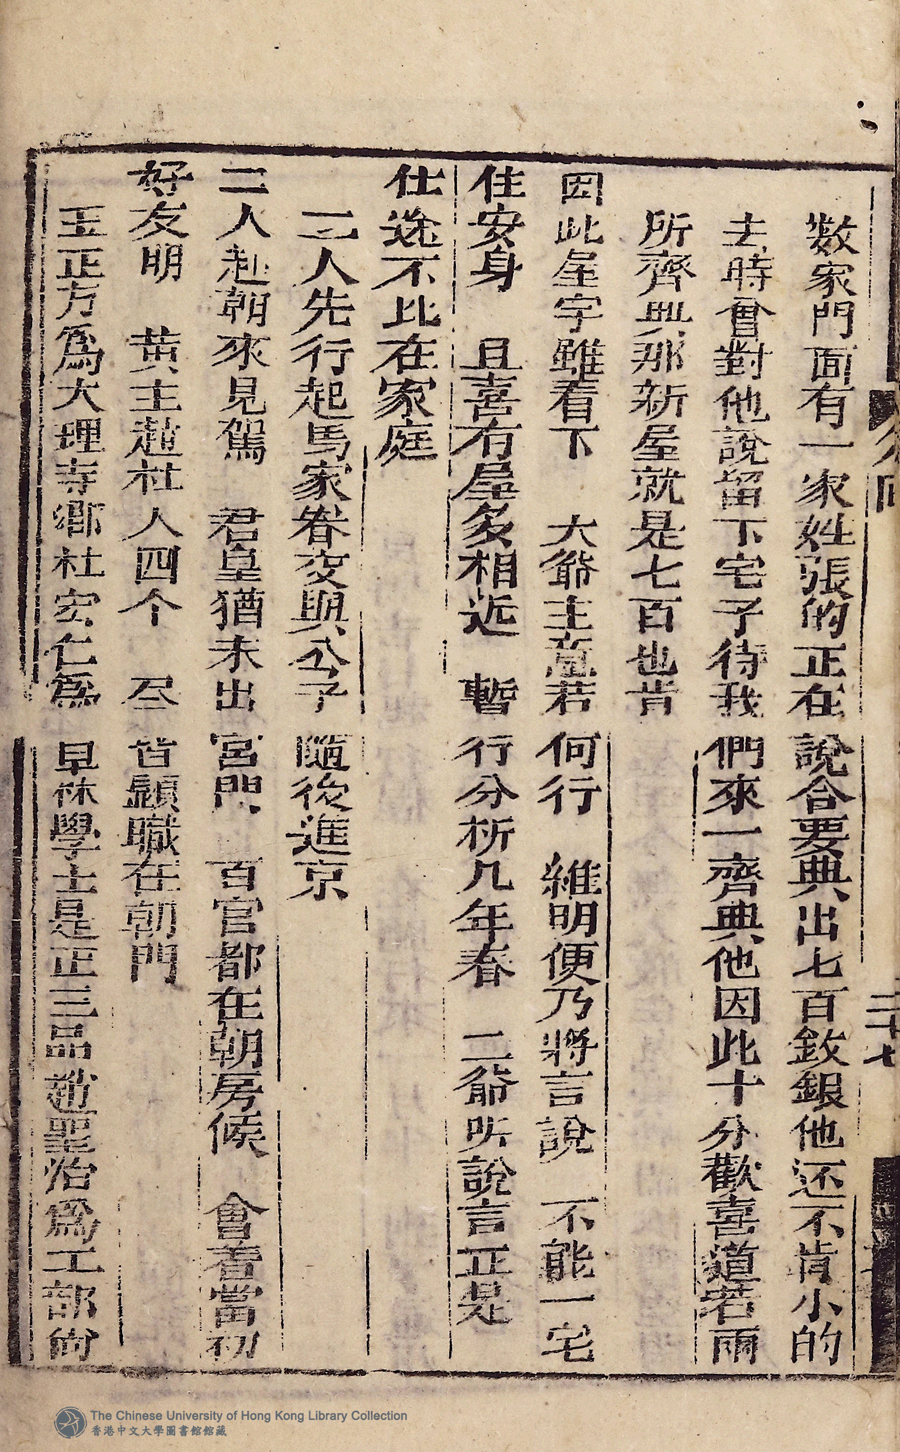 数家門面有一家姓張的正在說合要典出七百㪇銀他还不肯小的
去時會對他說留下宅子待我們來一齊典他因此十分歡喜道若兩
所齊典那新屋就是七百也肯
因此屋宇雖看下　大爺主意若何行　雒明便乃將言說　不能一宅
住安身　且喜有屋多相近　暫行分析几年春　二爺听說言正是
仕途不比在家庭
二人先行起馬家眷交與公子隨後進京
二人赴朝來見駕　君皇猶未出宮門　百官都在朝房候　會着當初
好友明　黄王趙杜人四个　尽皆顯職在朝門
王正方為大理寺卿杜宏仁為翰林學士是正三品趙聖治爲工部尙
二十七
The Chinese University of Hong Kong Library Collection
香港中文大學圖書館館藏